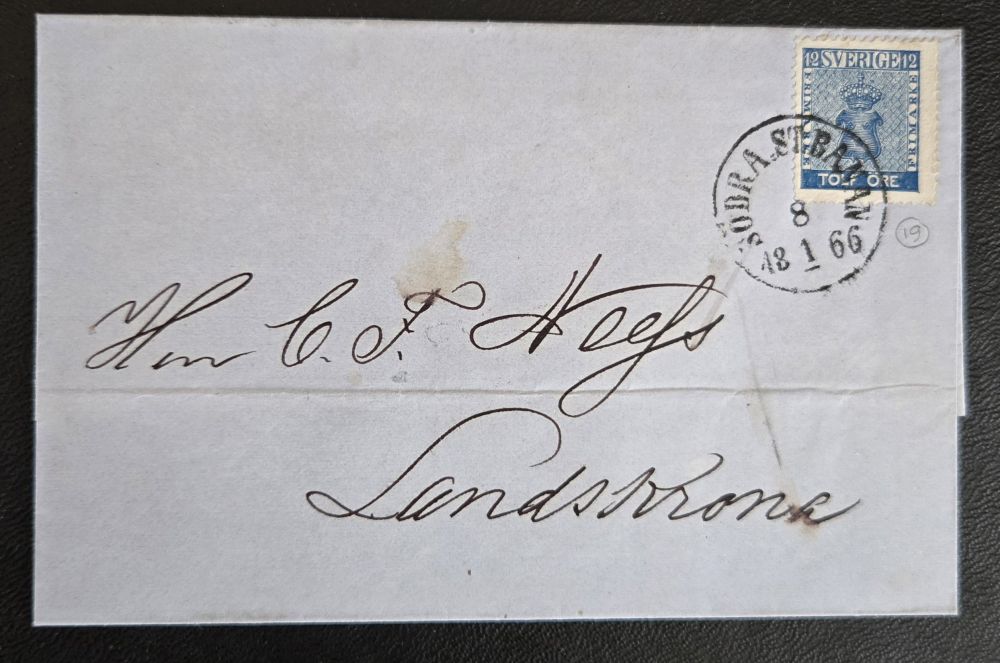 12 SVERIGE 12
FRIMÄRKE FRIMÄRKE
TOLF ÖRE
SÖDRA.ST.BANAN
8
18 1 66
19
Herr C. F. Neess
Landskrona